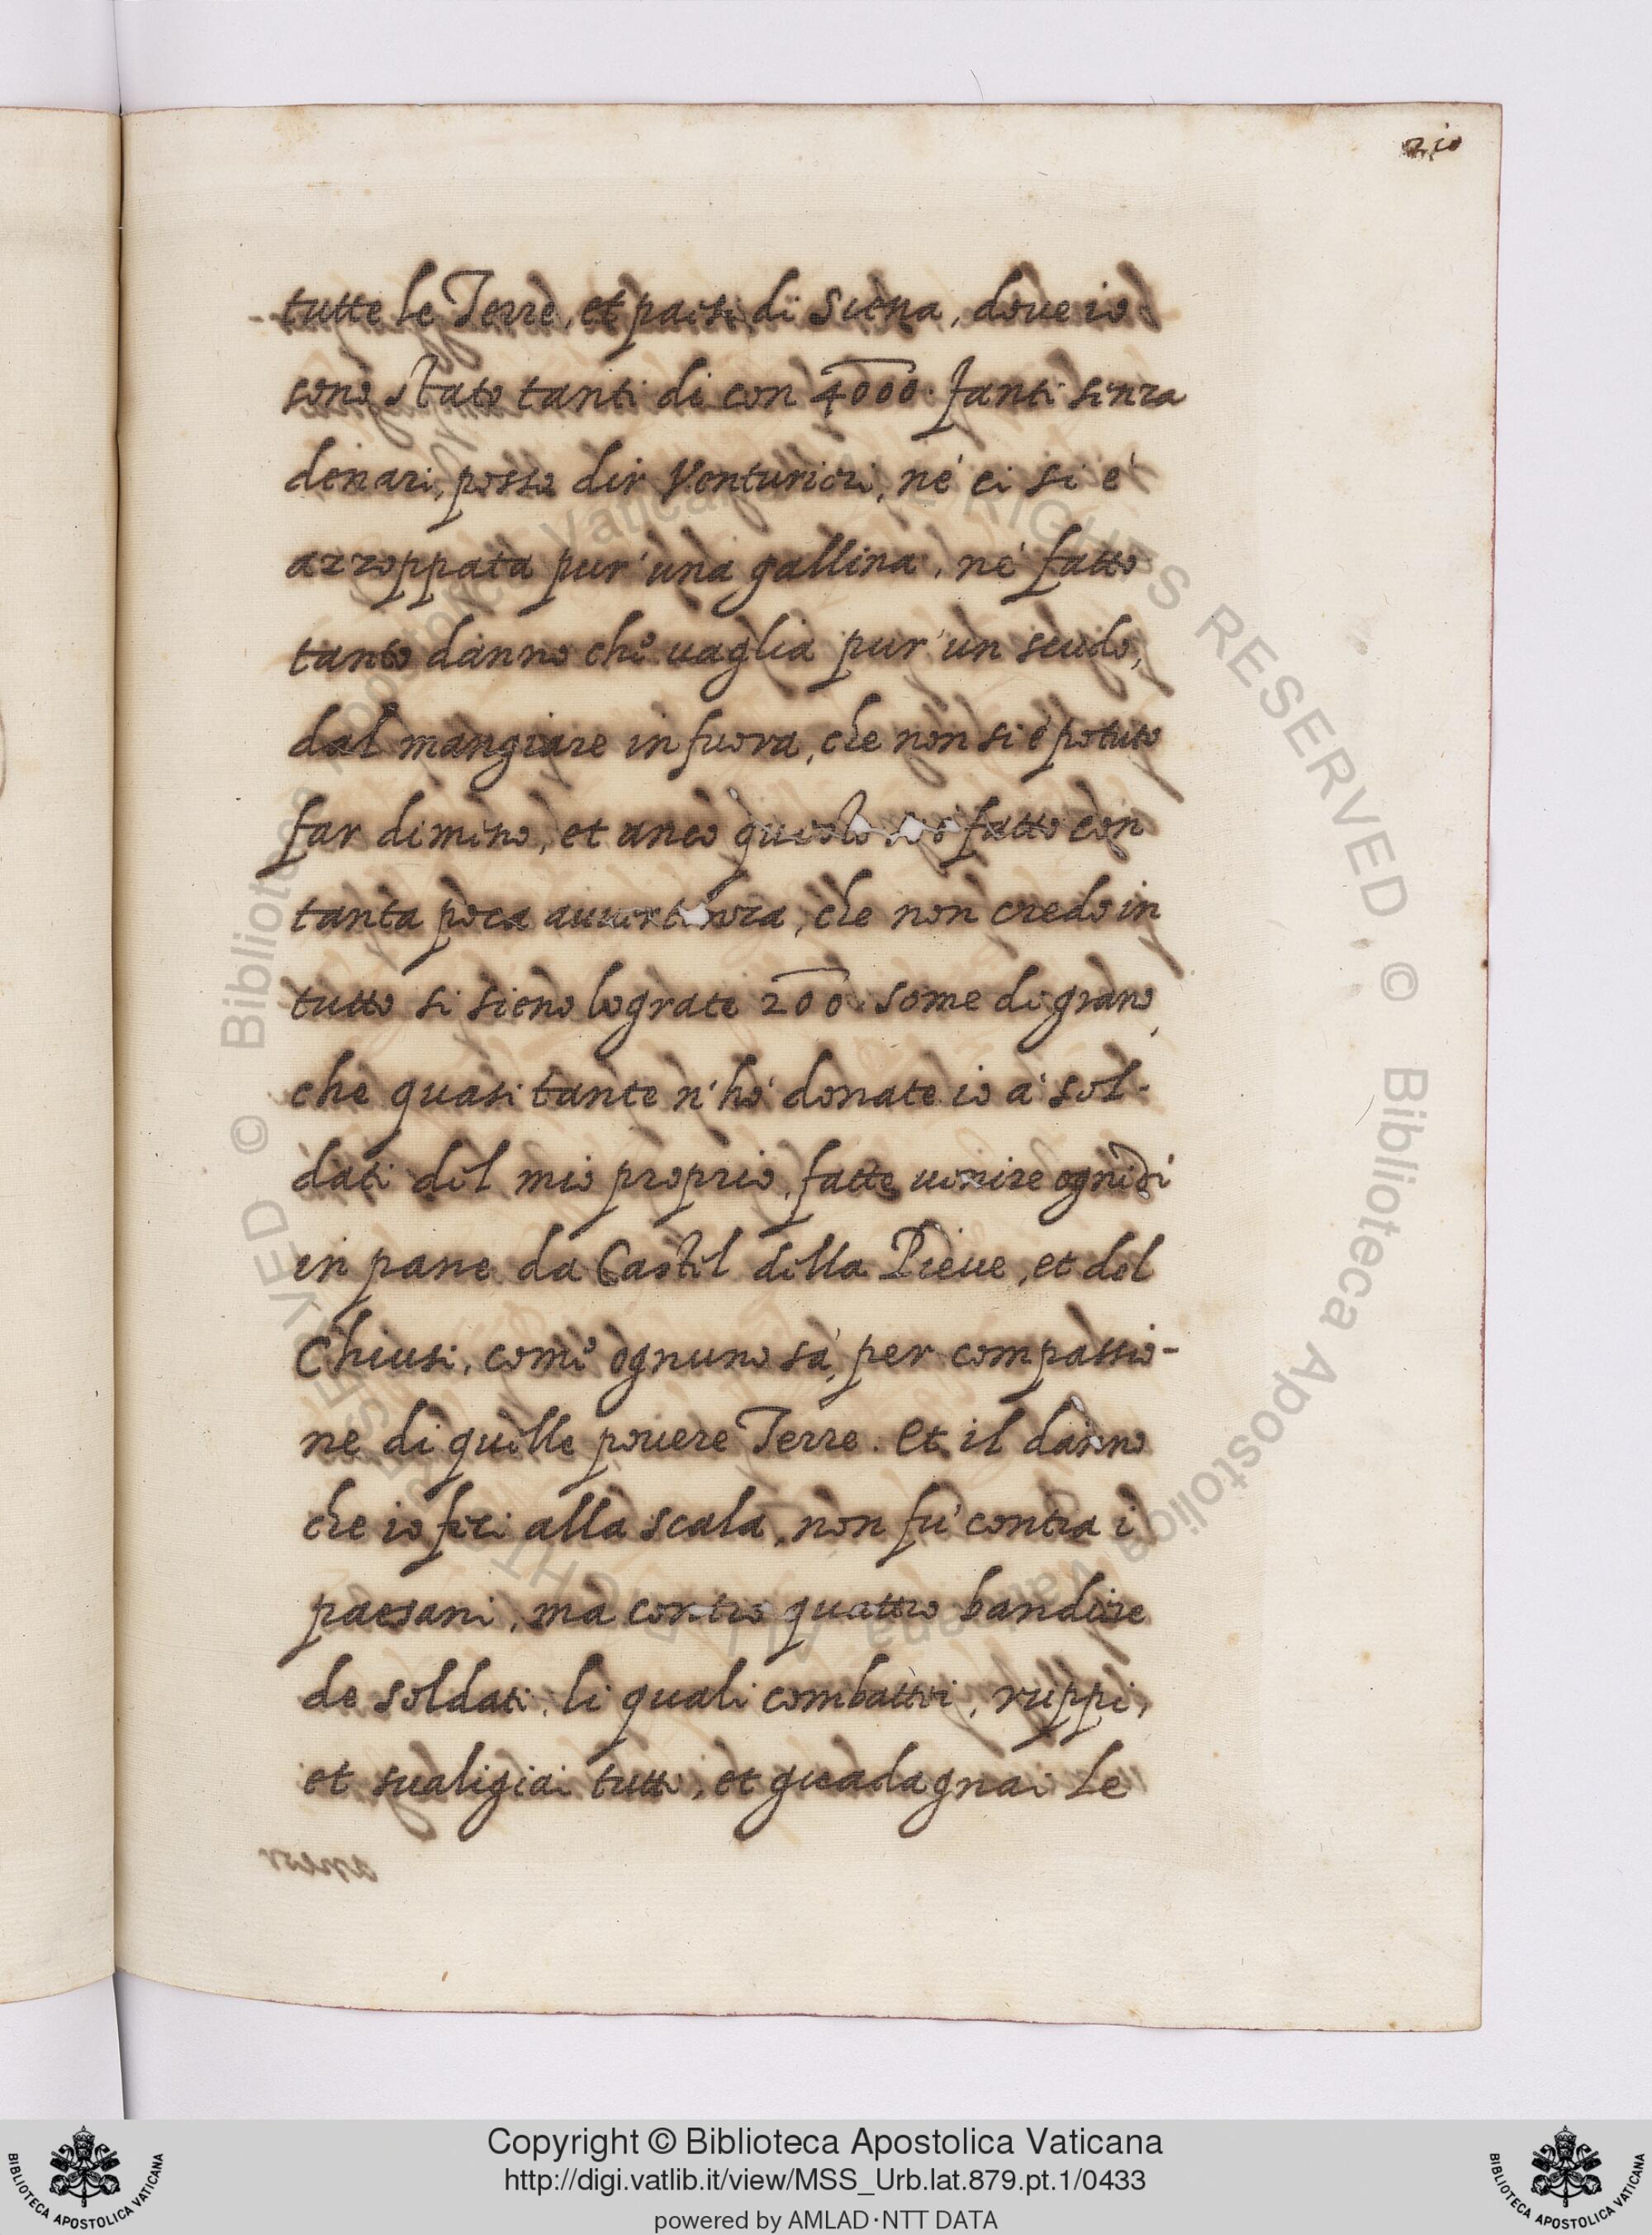 210
tutte le Terre, et paesi di Siena, dove io
sono stato tanti di con 4000. fanti senza
denari, posso dir Venturieri, né ci si é
azzoppata pur' una gallina, né fatto
tanto danno che vaglia pur' un scudo,
dal mangiare in fuora, che non si é potuto
far dimeno, et anco questo fatto con
tanta poca, che non credo in
tutto si sieno lograte 200. some di grano,
che quasi tante n'hó donate io á sol-
dati del mio proprio, fatte uenire ogni dí
in pane da Castel della Pieue, et del
Chiusi, come ognuno sá, per compassio-
ne di quelle pouere Terre. Et il danno
che io feci alla scala, non fú contra i
paesani, ma contro quattro bandiere
de soldati, li quali combattei, ruppi,
et sualigiai tutti, et guadagnai le
Copyright © Biblioteca Apostolica Vaticana
http://digi.vatlib.it/view/MSS_Urb.lat.879.pt.1/0433
powered by AMLAD·NTT DATA